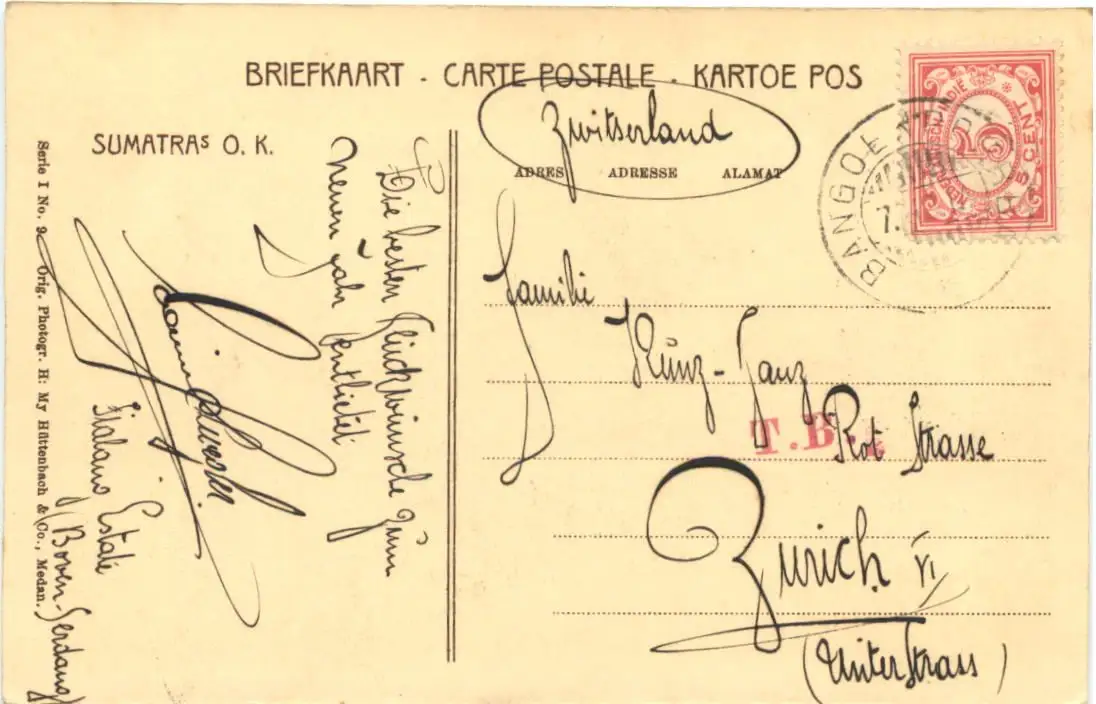 BRIEFKAART - CARTE POSTALE - KARTOE POS
Zwitserland
ADRES ADRESSE ALAMAT
SUMATRAS O. K.
NEDERLANDSCH-INDIË
5 CENT
BANGOE
7.
Die besten Glückwünsche zum
neuen Jahr entbietet
Estate
(Boven-Serdang)
Serie I No. 9 Orig. Photogr. H: My Hüttenbach & Co., Medan.
Familie
Künz-Ganz
T.B.
Rot Strasse
Zurich VI
(Unterstrass)